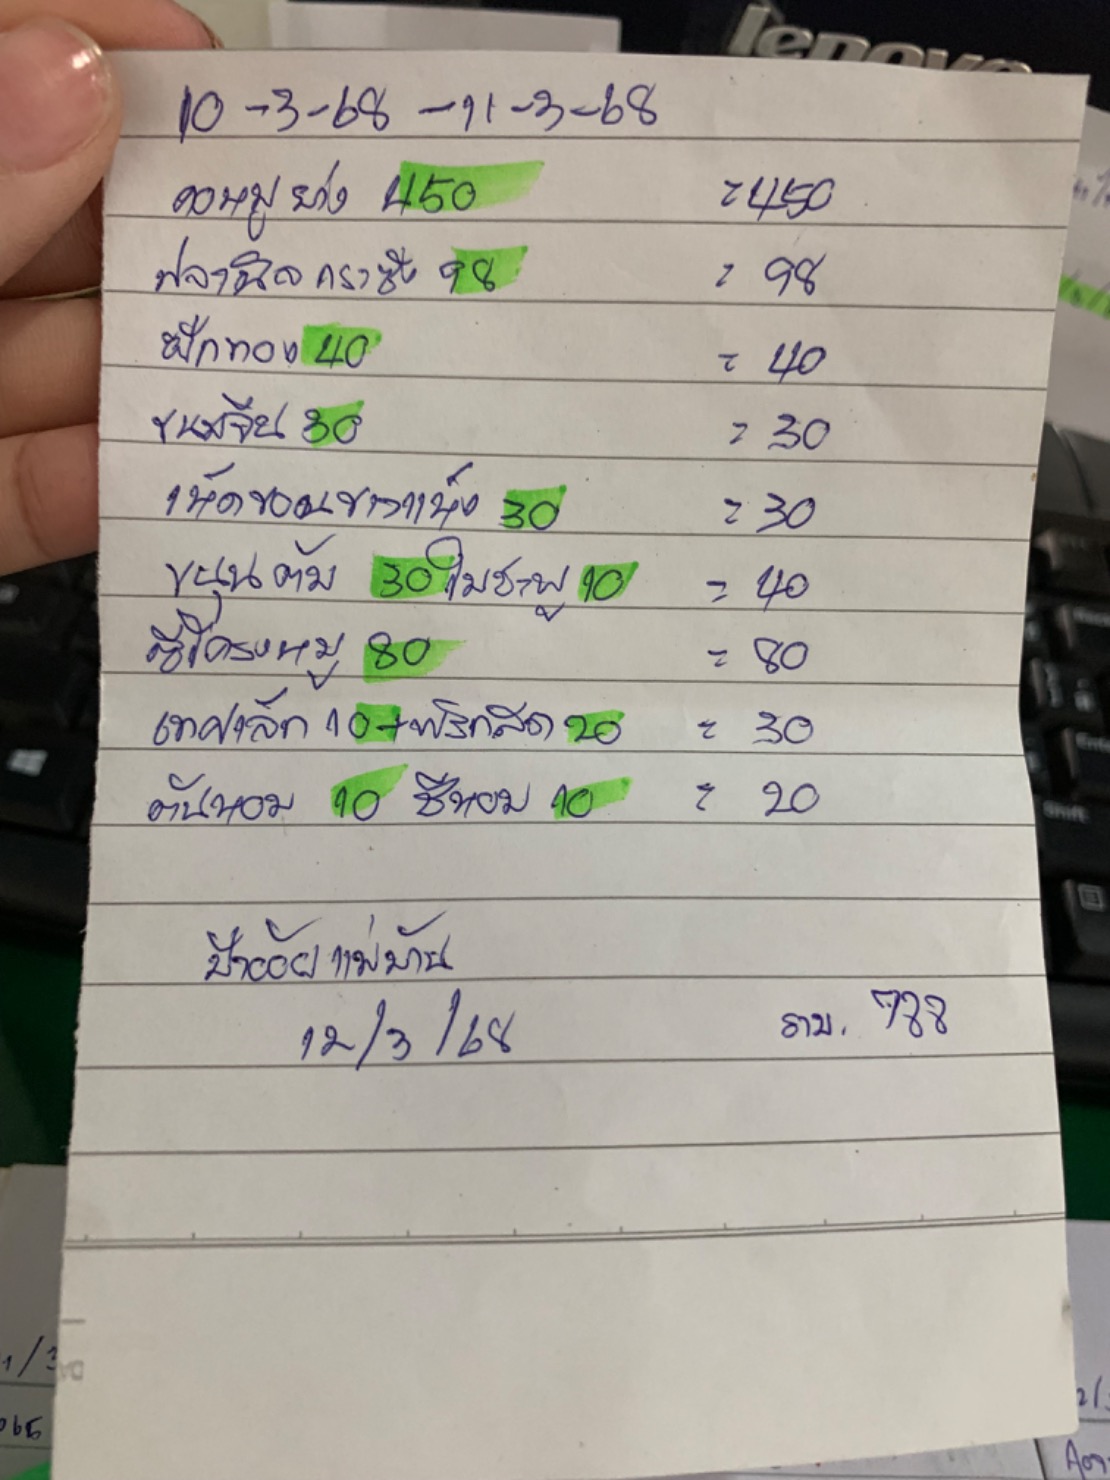 lenovo
10-3-68 - 11-3-68
คอหมูย่าง 450 = 450
ปลานิล 98 = 98
ฟักทอง 40 = 40
ขนมจีน 30 = 30
เห็ดขอนขาวแห้ง 30 = 30
ขนุนต้ม 30 ใบชะพู 10 = 40
ซี่โครงหมู 80 = 80
10 + พริกสด 20 = 30
ต้นหอม 10 ชีหอม 10 = 20
ป้าอ้อย แม่บ้าน
12/3/68 รวม. 788